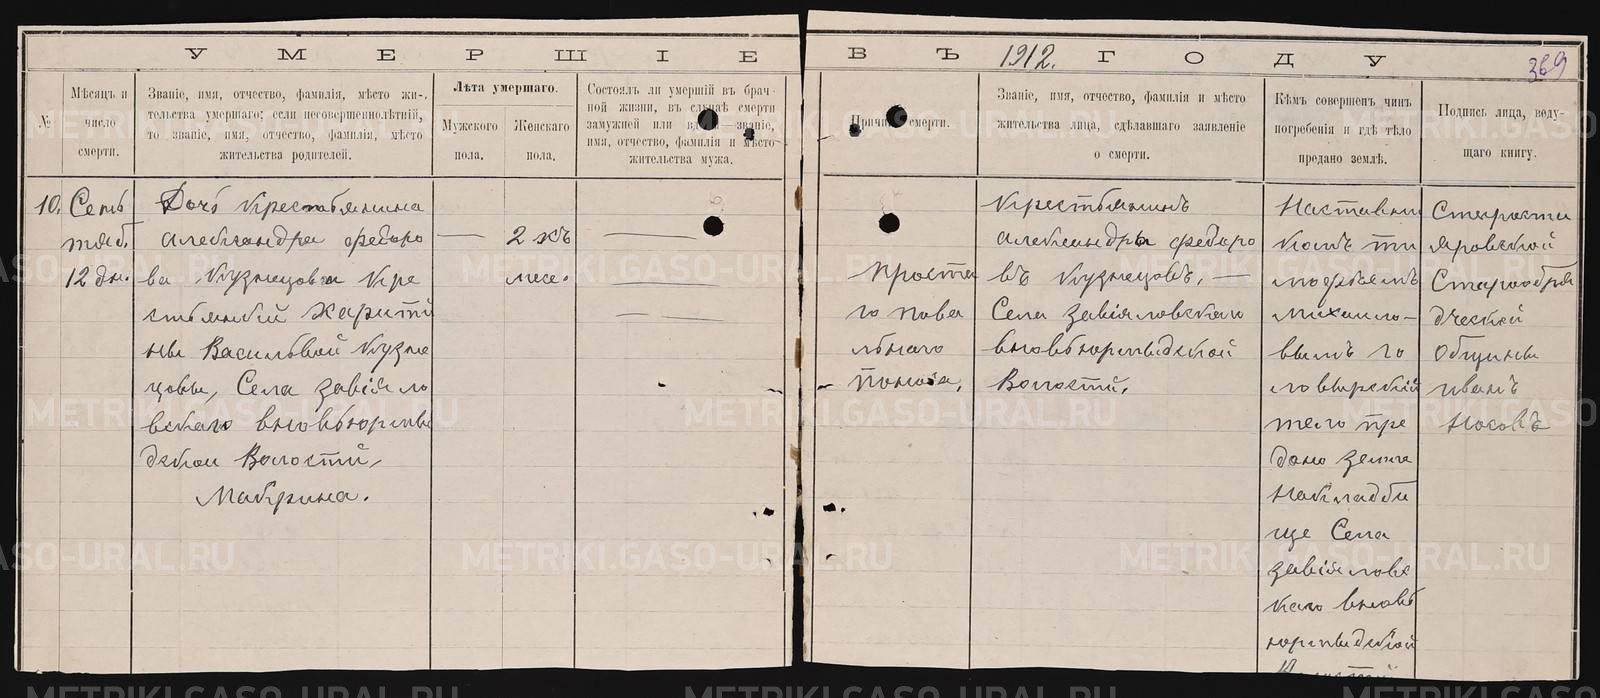 УМЕРШІЕ
ВЪ 1912. ГОДУ
369
№
Мѣсяцъ и
число
смерти.
Званіе, имя, отчество, фамилія, мѣсто жи-
тельства умершаго; если несовершеннолѣтній,
то званіе, имя, отчество, фамилія, мѣсто
жительства родителей.
Лѣта умершаго.
Мужского
пола.
Женскаго
пола.
Состоялъ ли умершій въ брач-
ной жизни, въ случаѣ смерти
замужней или званіе,
имя, отчество, фамилія и мѣсто
жительства мужа.
смерти.
Званіе, имя, отчество, фамилія и мѣсто
жительства лица, сдѣлавшаго заявленіе
о смерти.
Кѣмъ совершенъ чинъ
погребенія и гдѣ тѣло
предано землѣ.
Подпись лица, веду-
щаго книгу.
10.
Сень
тяб.
12 дн.
Дочь Крестьянина
Александра Федоро
ва Кузнецова Кре
Васильевой Кузне
цовы, Села Завіяло
вскаго
Волостій,
Макрина.
2 хъ
мес.
Проста
го пова
льнаго
поноса,
Крестьянинъ
Александръ Федоро
въ Кузнецовъ,
Села Завіяловскаго
Волостій.
Наставни
комъ Ти
мофѣемъ
Михаило-
вымъ Го
тело пре
дано земле
Накладби
ще Села
Завіяловс
каго
Староста
Яровской
Старообря
дческой
Общины
Иванъ
Носовъ
METRIKI.GASO-URAL.RU